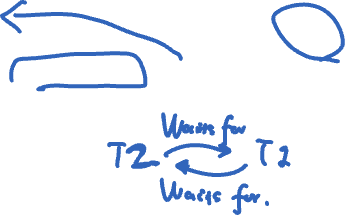 Waits for
T2 T1
Waits for.